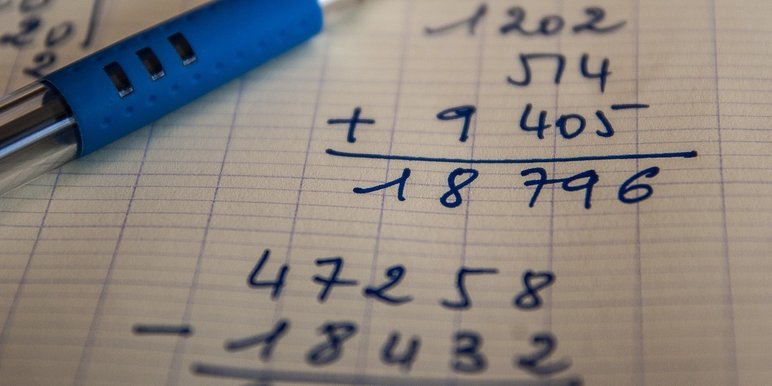 20
2
1202
514
+ 9 405
18 796
47258
- 18432